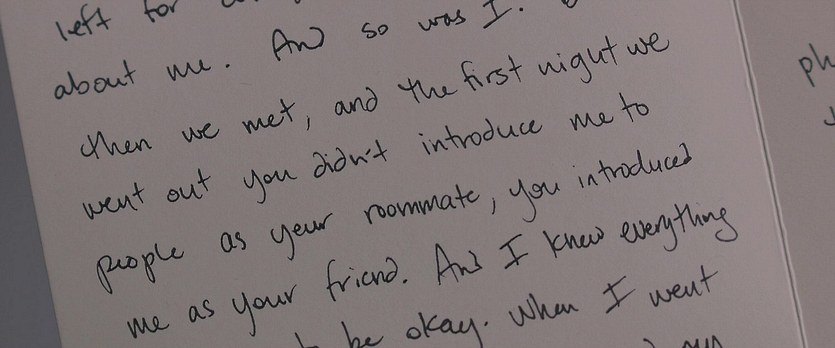 left for
about me. And so was I.
then we met, and the first night we
went out you didn't introduce me to
people as your roommate, you introduced
me as your friend. And I knew everything
be okay. When I went
ph